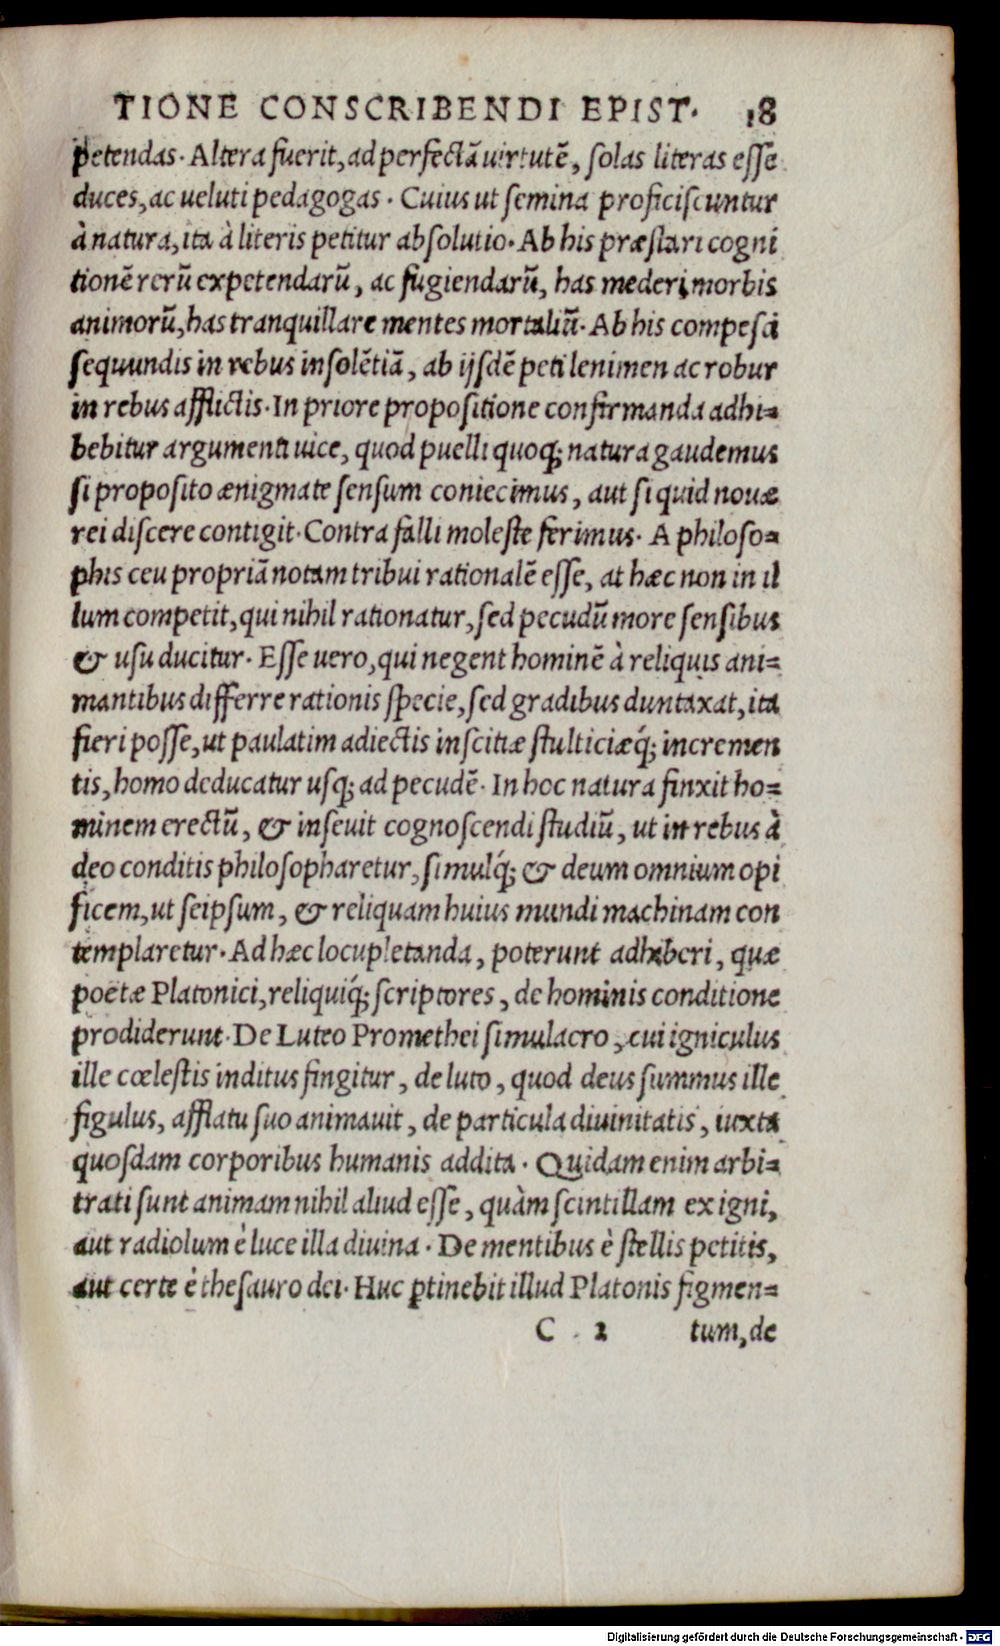 TIONE CONSCRIBENDI EPIST. 18
petendas. Altera fuerit, ad perfectã uirtutẽ, solas literas esse
duces, ac ueluti pedagogas. Cuius ut semina proficiscuntur
à natura, ita à literis petitur absolutio. Ab his præstari cogni
tionẽ rerũ expetendarũ, ac fugiendarũ, has mederi morbis
animorũ, has tranquillare mentes mortaliũ. Ab his compesci
sequundis in rebus insolẽtiã, ab ijsdẽ peti lenimen ac robur
in rebus afflictis. In priore propositione confirmanda adhi=
bebitur argumenti uice, quod puelli quoq; natura gaudemus
si proposito ænigmate sensum coniecimus, aut si quid nouæ
rei discere contigit. Contra falli moleste ferimus. A philoso=
phis ceu propriã notam tribui rationalẽ esse, at hæc non in il
lum competit, qui nihil rationatur, sed pecudũ more sensibus
& usu ducitur. Esse uero, qui negent hominẽ à reliquis ani=
mantibus differre rationis specie, sed gradibus duntaxat, ita
fieri posse, ut paulatim adiectis inscitiæ stulticiæq́; incremen
tis, homo deducatur usq; ad pecudẽ. In hoc natura finxit ho=
minem erectũ, & inseuit cognoscendi studiũ, ut in rebus à
deo conditis philosopharetur, simulq́; & deum omnium opi
ficem, ut seipsum, & reliquam huius mundi machinam con
templaretur. Ad hæc locupletanda, poterunt adhiberi, quæ
poëtæ Platonici, reliquiq́; scriptores, de hominis conditione
prodiderunt. De Luteo Promethei simulacro, cui igniculus
ille cœlestis inditus fingitur, de luto, quod deus summus ille
figulus, afflatu suo animauit, de particula diuinitatis, iuxta
quosdam corporibus humanis addita. Quidam enim arbi=
trati sunt animam nihil aliud esse, quàm scintillam ex igni,
aut radiolum è luce illa diuina. De mentibus è stellis petitis,
aut certe è thesauro dei. Huc ꝑtinebit illud Platonis figmen=
C 2 tum, de
Digitalisierung gefördert durch die Deutsche Forschungsgemeinschaft - DFG